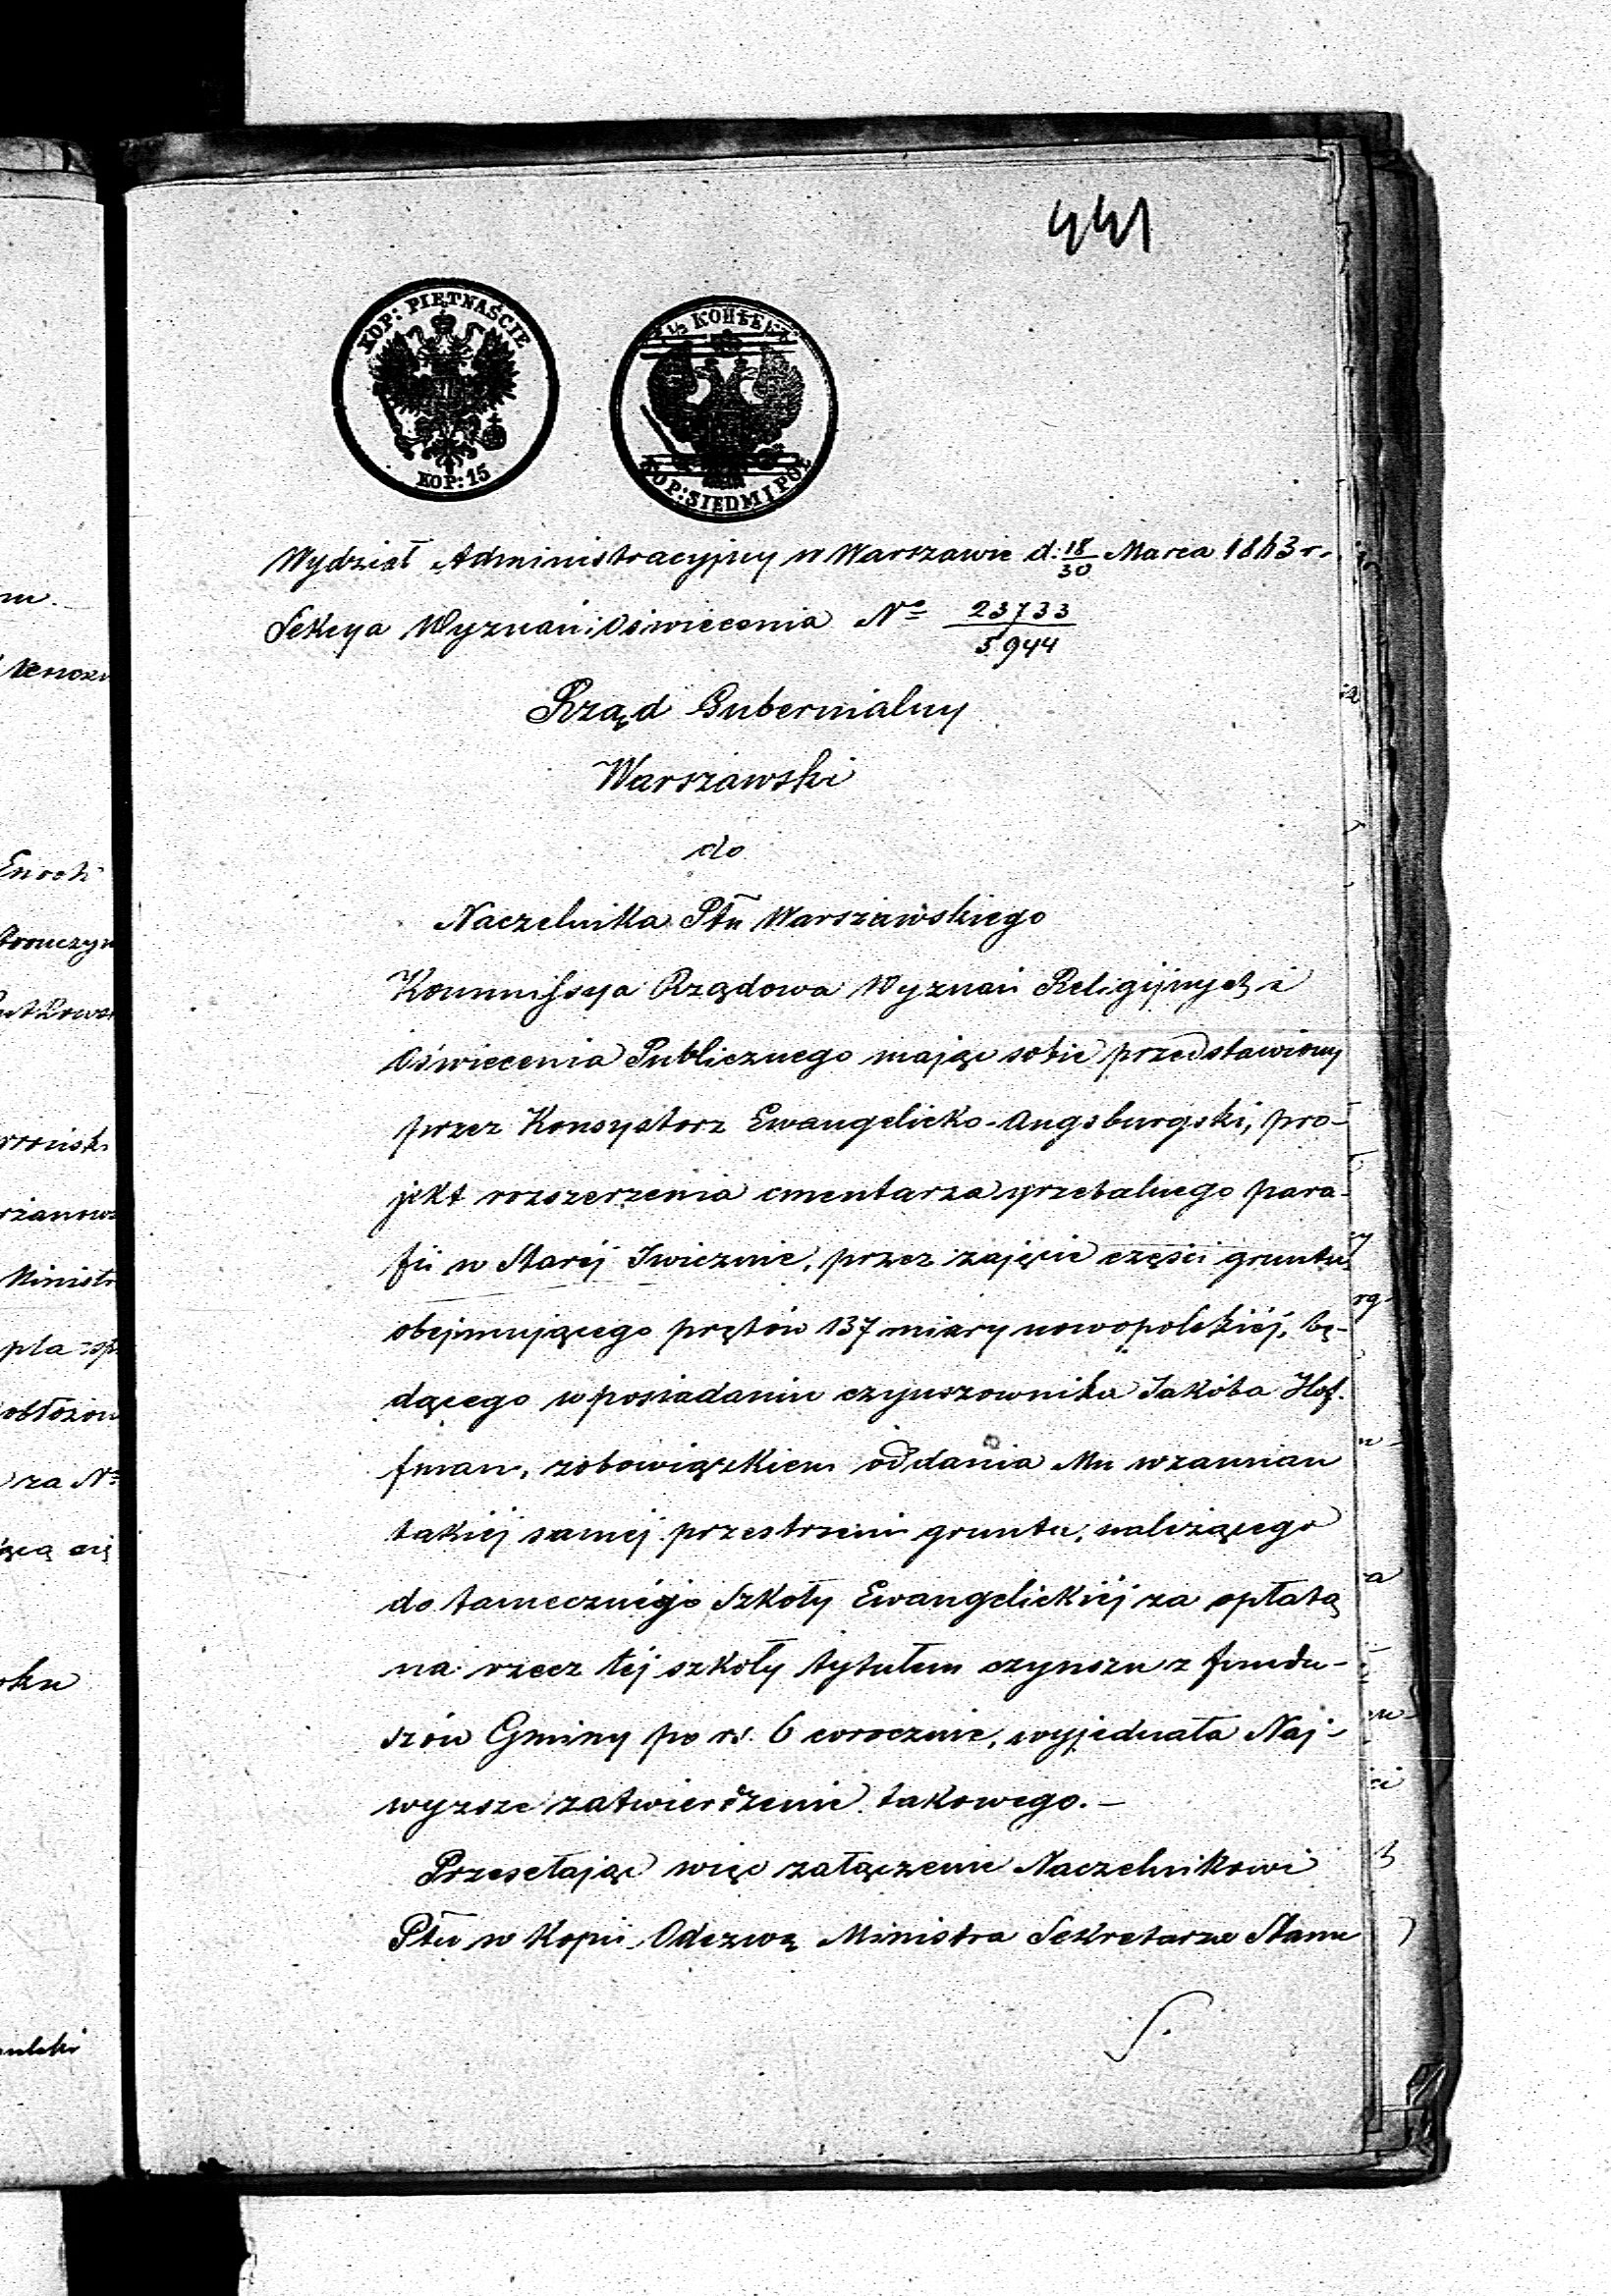 441
KOP: PIĘTNAŚCIE
KOP: 15
½ КОПѢЕКЪ
KOP: SIEDM I PÓŁ
Wydział Administracyjny w Warszawie d. 18/30 Marca 1863 r.
Sekcya Wyznań i Oświecenia Nº 23733/5944
Rząd Gubernialny
Warszawski
do
Naczelnika Ptu Warszawskiego
Kommissya Rządowa Wyznań Religijnych i
Oświecenia Publicznego mając sobie przedstawiony
przez Konsystorz Ewangelicko-Augsburgski, pro-
jekt rozszerzenia cmentarza grzebalnego para-
fii w Starej Iwicznie, przez zajęcie części gruntu
obejmującego prętów 137 miary nowopolskiéj, bę-
dącego w posiadaniu czynszownika Jakóba Hof-
fman, zobowiązkiem oddania Mu wzamian
takiéj samej przestrzeni gruntu, należącego
do tamecznéjo Szkoły Ewangelickiéj za opłatą
na rzecz téj szkoły tytułem czynszu z fundu-
szów Gminy po rs. 6 corocznie, wyjednała Naj-
wyższe zatwierdzenie takowego.—
Przesełając więc załączenie Naczelnikowi
Ptu w Kopii Odezwę Ministra Sekretarza Stanu